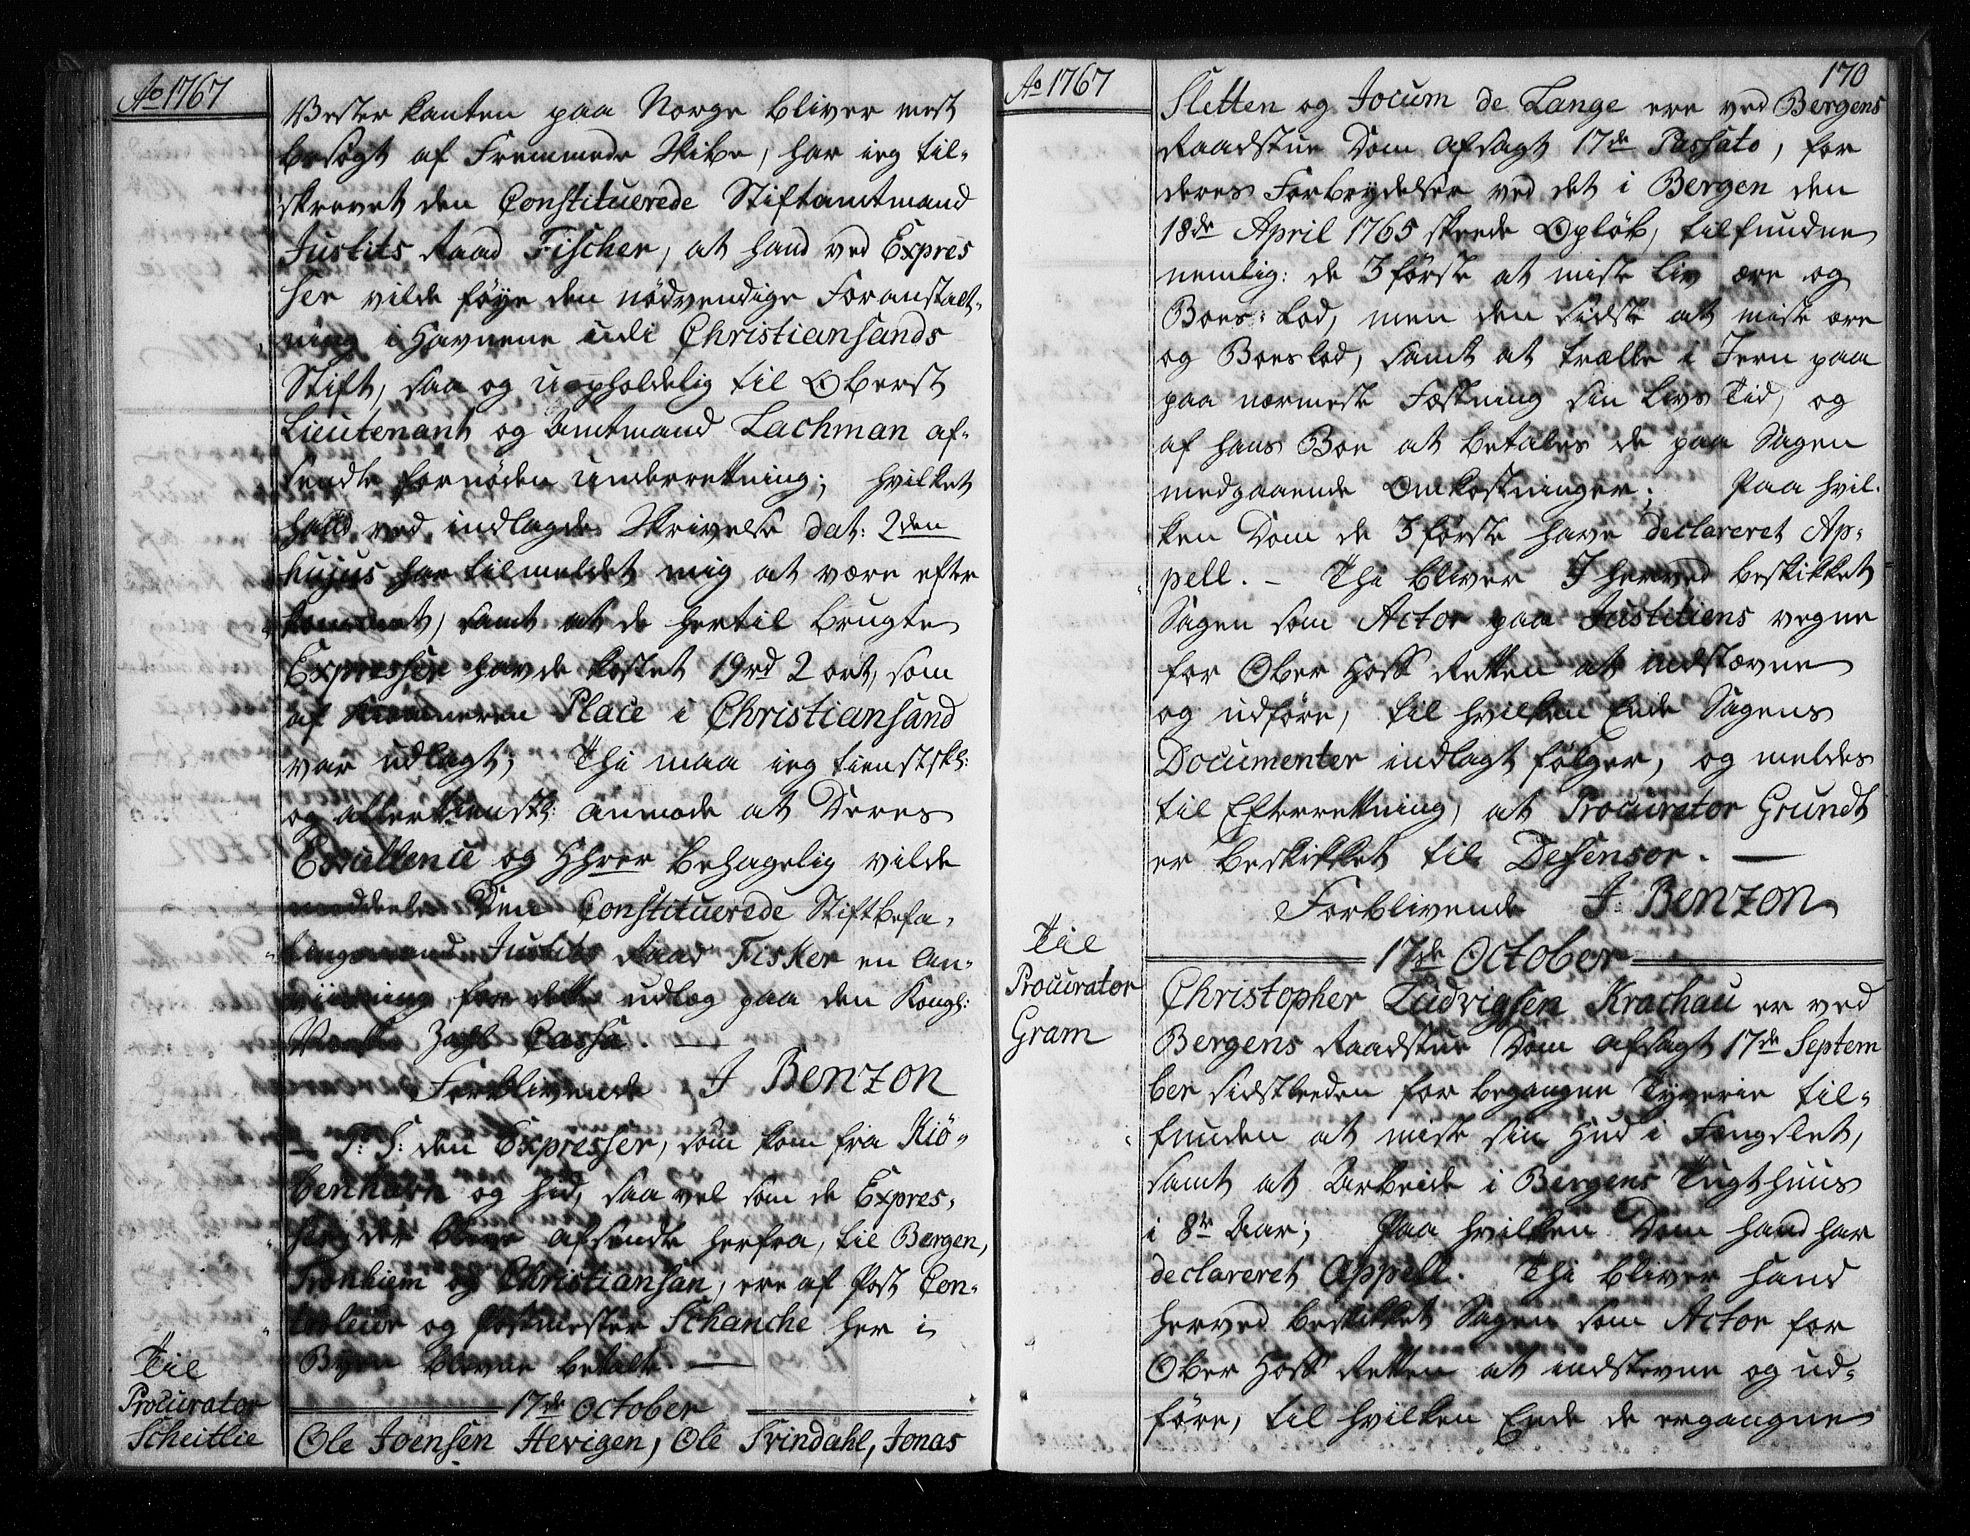 Ao 1767
Vester kanten paa Norge bliver mest
besøgt af Fremmede Skibe, har ieg til-
skrevet den Constituerede Stiftamtmand
Justits Raad Fischer, at hand ved Expres
ser vilde føye den nødvendige Foranstalt-
ning i Havnene udi Christiansands
Stift, saa og uopholdelig til Oberst
Lieutenant og Amtmand Lachman af-
sendte fornøden underretning; hvilket
hand ved indlagde Skrivelse dat: 2den
hujus har tilmeldet mig at være efter
kommet, samt at de hertil brugte
Expresser havde kostet 19 rd 2 ort, som
af Place i Christiansand
var udlagt; Thi maa ieg tienstskl:
og allertienstl: anmode at Deres
Excellence og HHrer behagelig vilde
meddele Den Constituerede Stiftbefa-
lingsmand Justits Raad Fisker en An-
viisning for dette udlæg paa den Kongl:
Norske Zahl Cassa. —
Forblivende J Benzon
— P: S: den Expresser, som kom fra Kiö-
benhavn og hid, saa vel som de Expres-
ser, der bleve afsendte herfra, til Bergen,
Tronhiem og Christiansan, ere af Post Con-
troleur og Postmester Schanche her i
Byen blevne betalte. —
17de October
Til
Procurator
Scheitlie
Ole Joensen Hevigen, Ole Trindahl, Jonas
Ao 1767
170
Sletten og Jocum de Lange ere ved Bergens
Raadstue Dom afsagt 17de Passato, for
deres Forbrydelser ved det i Bergen den
18de April 1765 skeede Opløb, tilfundne
nemlig: de 3 første at miste Liv ære og
Boes-Lod, men den sidste at miste ære
og Boeslod, samt at trælle i Jern paa
paa nærmeste Fæstning sin Livs Tid, og
af hans Boe at betales de paa Sagen
medgaaende Omkostninger; Paa hvil-
ken Dom de 3 første have declareret Ap-
pell. — Thi bliver I herved beskikket
Sagen som Actor paa Justitiens vegne
for Ober Hoff Retten at indstævne
og udføre, til hvilken Ende Sagens
Documenter indlagt følger, og meldes
til Efterretning, at Procurator Grundt
er beskikket til Defensor. —
Forblivende J: Benzon
17de October
Til
Procurator
Gram
Christopher Ludvigsen Krachau er ved
Bergens Raadstue Dom afsagt 17de Septem
ber sidstleeden for begangne Tyverie til-
funden at miste sin Hud i Fengslet,
samt at Arbeide i Bergens Tugthuus
i 8te Aar; Paa hvilken Dom hand har
declareret Appell. Thi bliver hand
herved beskikket Sagen som Actor for
Ober Hoff Retten at indstevne og ud-
føre, til hvilken Ende de ergangne